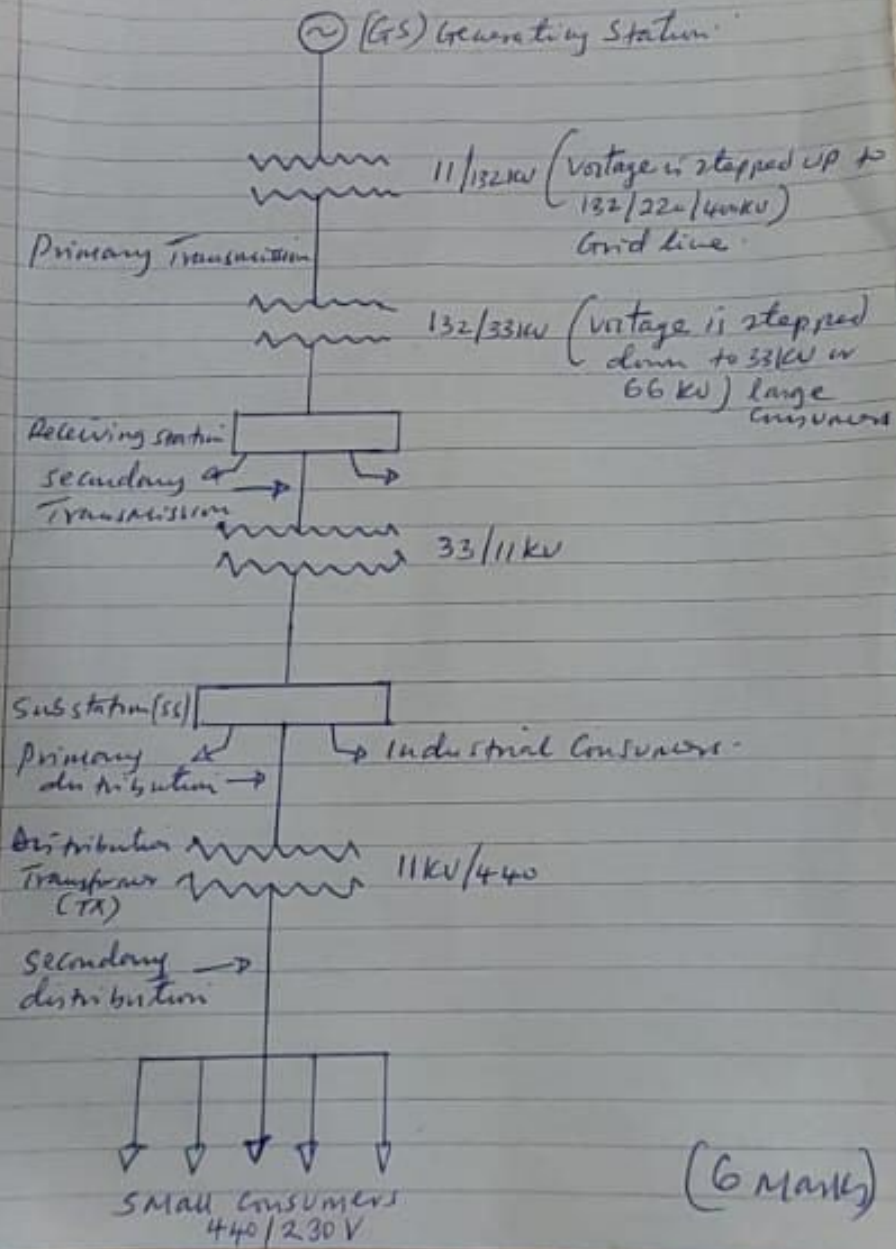 (GS) Generating Station.
11/132KV (Voltage is stepped up to
132/220/400KV)
Grid line.
Primary Transmission
132/33KV (Voltage is stepped
down to 33KV or
66 KV) large
Consumers
Receiving station
Secondary
Transmission
33/11KV
Substation (SS)
Primary
distribution
Industrial Consumers.
Distribution
Transformer
(TX)
11KV/440
Secondary
distribution
Small Consumers
440/230 V
(6 Marks)